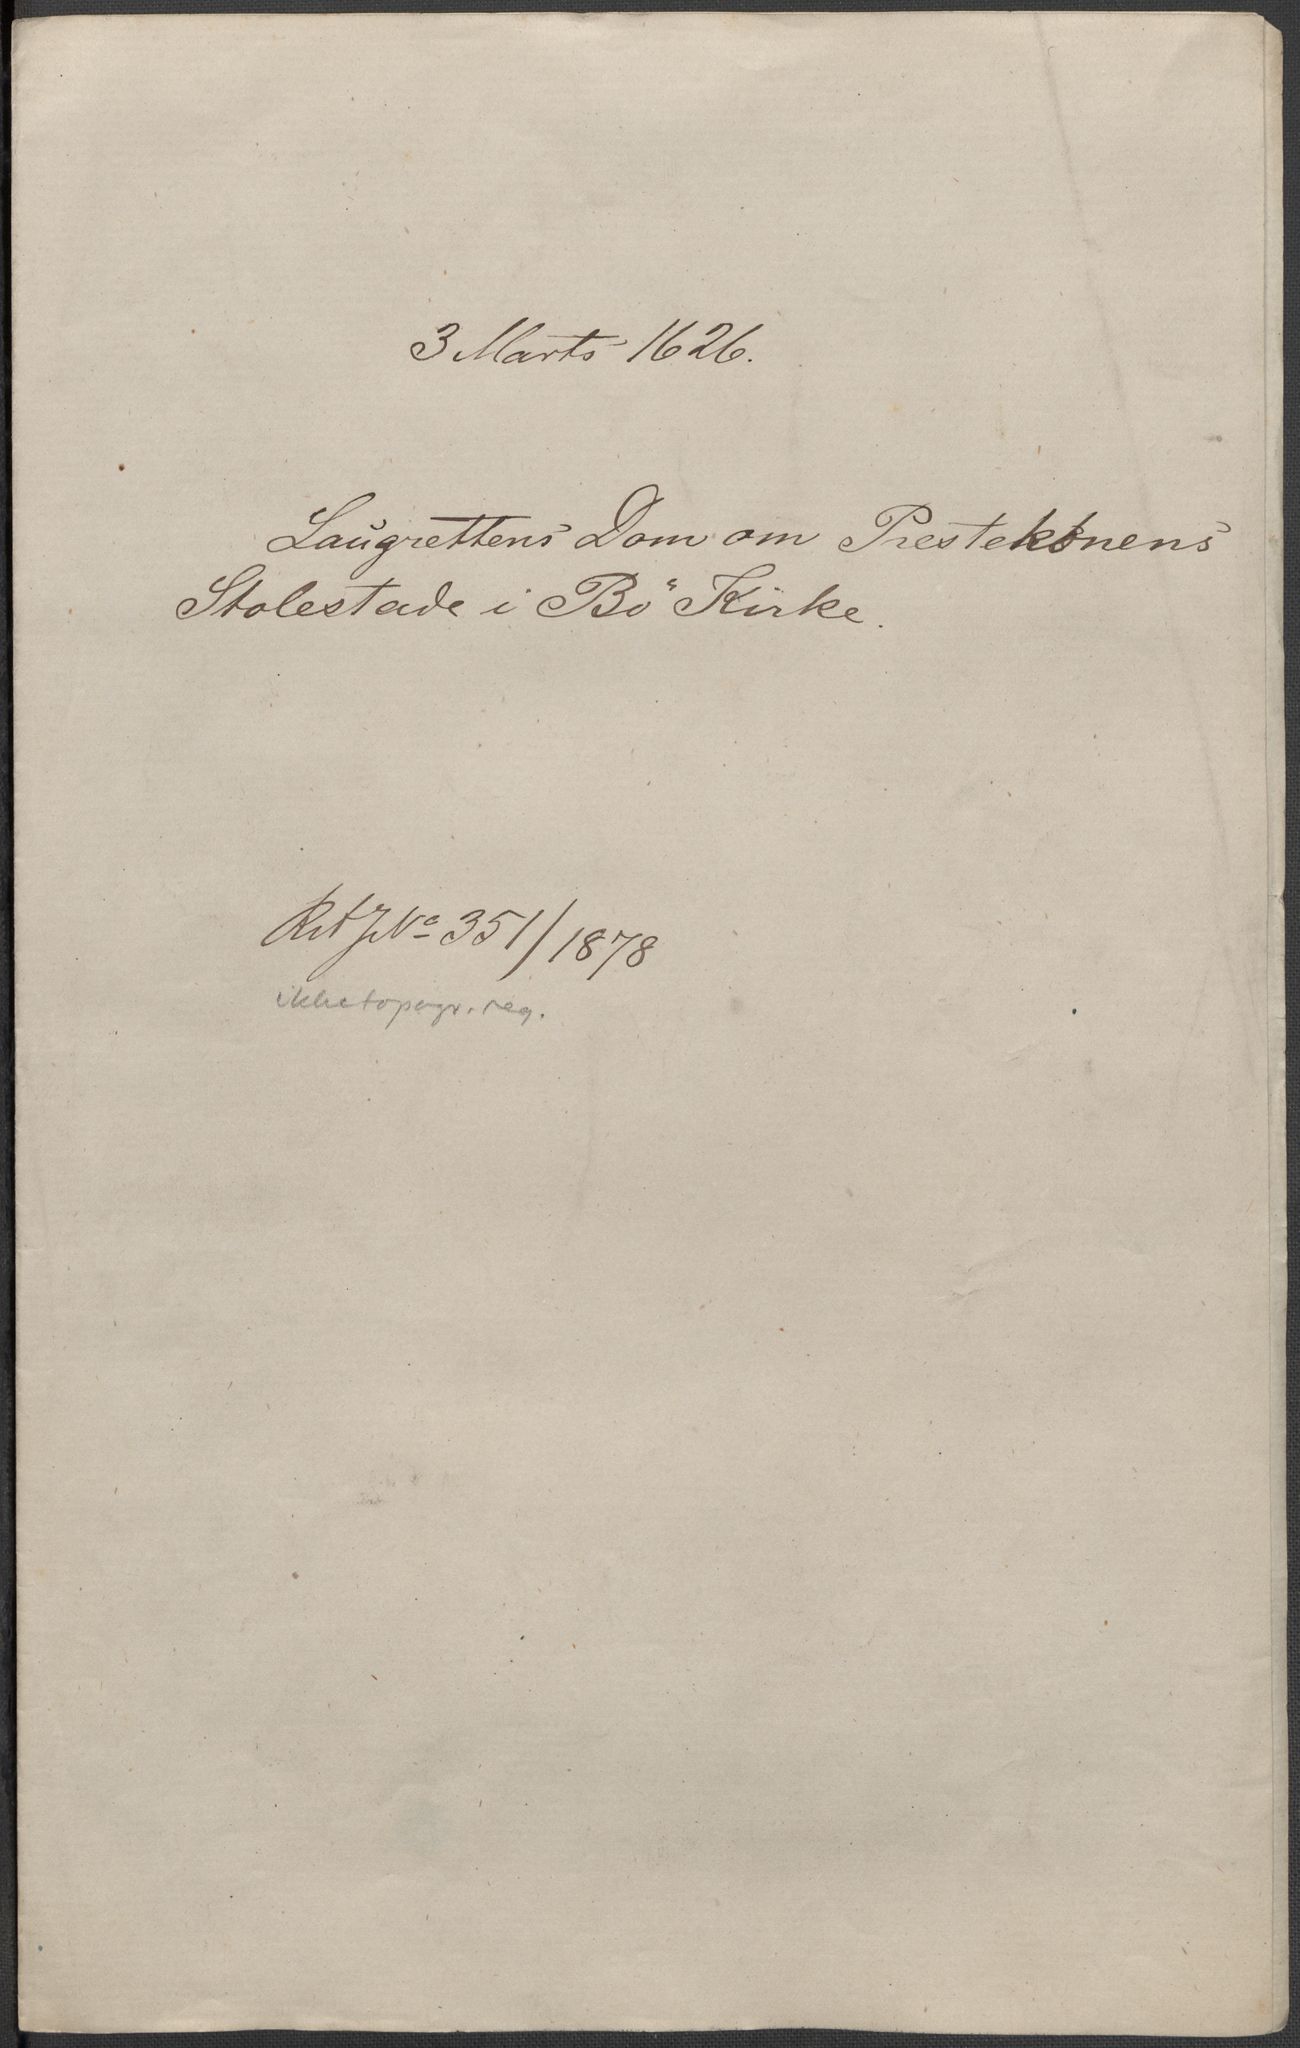 3 Marts 1626.
Laugrettens Dom om Prestekonens
Stolestade i Bö Kirke.
RA JNo 351/1878
ikke topogr. reg.